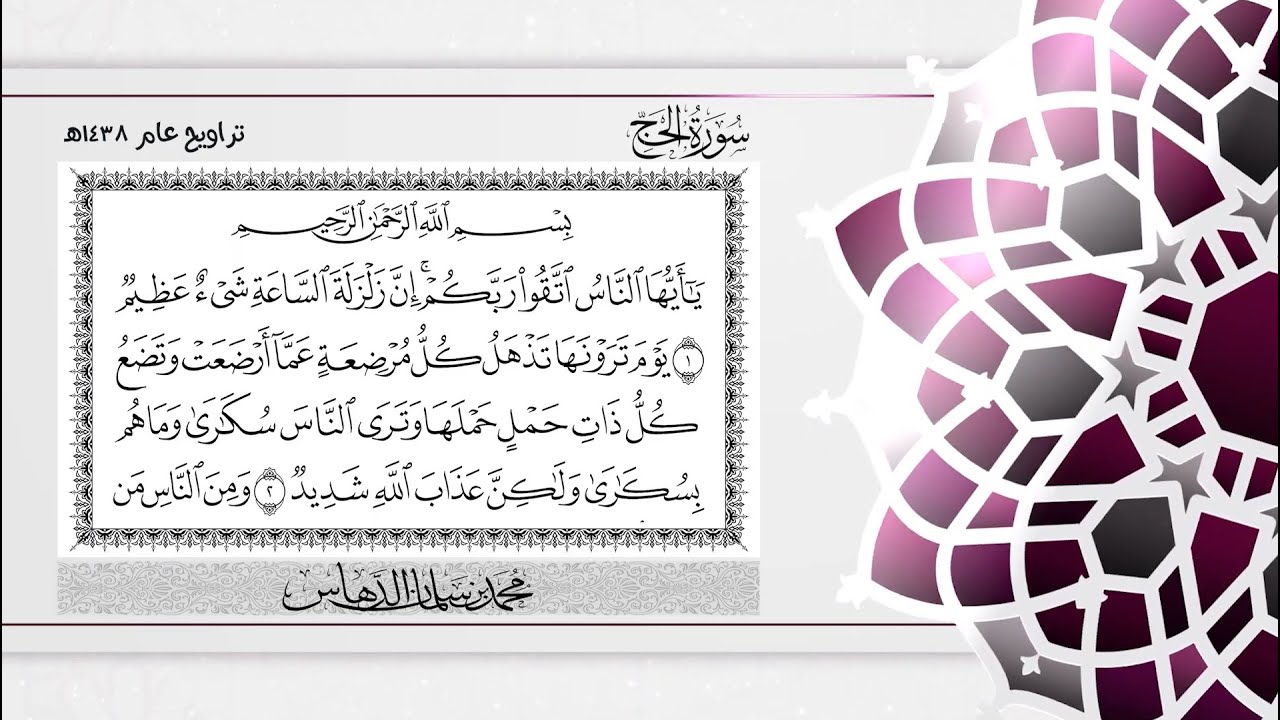 سُورَةُ الحَجِّ
تراويح عام ١٤٣٨هـ
بِسْمِ ٱللَّهِ ٱلرَّحْمَٰنِ ٱلرَّحِيمِ
يَـٰٓأَيُّهَا ٱلنَّاسُ ٱتَّقُوا۟ رَبَّكُمْ ۚ إِنَّ زَلْزَلَةَ ٱلسَّاعَةِ شَىْءٌ عَظِيمٌ
١ يَوْمَ تَرَوْنَهَا تَذْهَلُ كُلُّ مُرْضِعَةٍ عَمَّآ أَرْضَعَتْ وَتَضَعُ
كُلُّ ذَاتِ حَمْلٍ حَمْلَهَا وَتَرَى ٱلنَّاسَ سُكَـٰرَىٰ وَمَا هُم
بِسُكَـٰرَىٰ وَلَـٰكِنَّ عَذَابَ ٱللَّهِ شَدِيدٌ ٢ وَمِنَ ٱلنَّاسِ مَن
محمد بن سلمان الدهاس